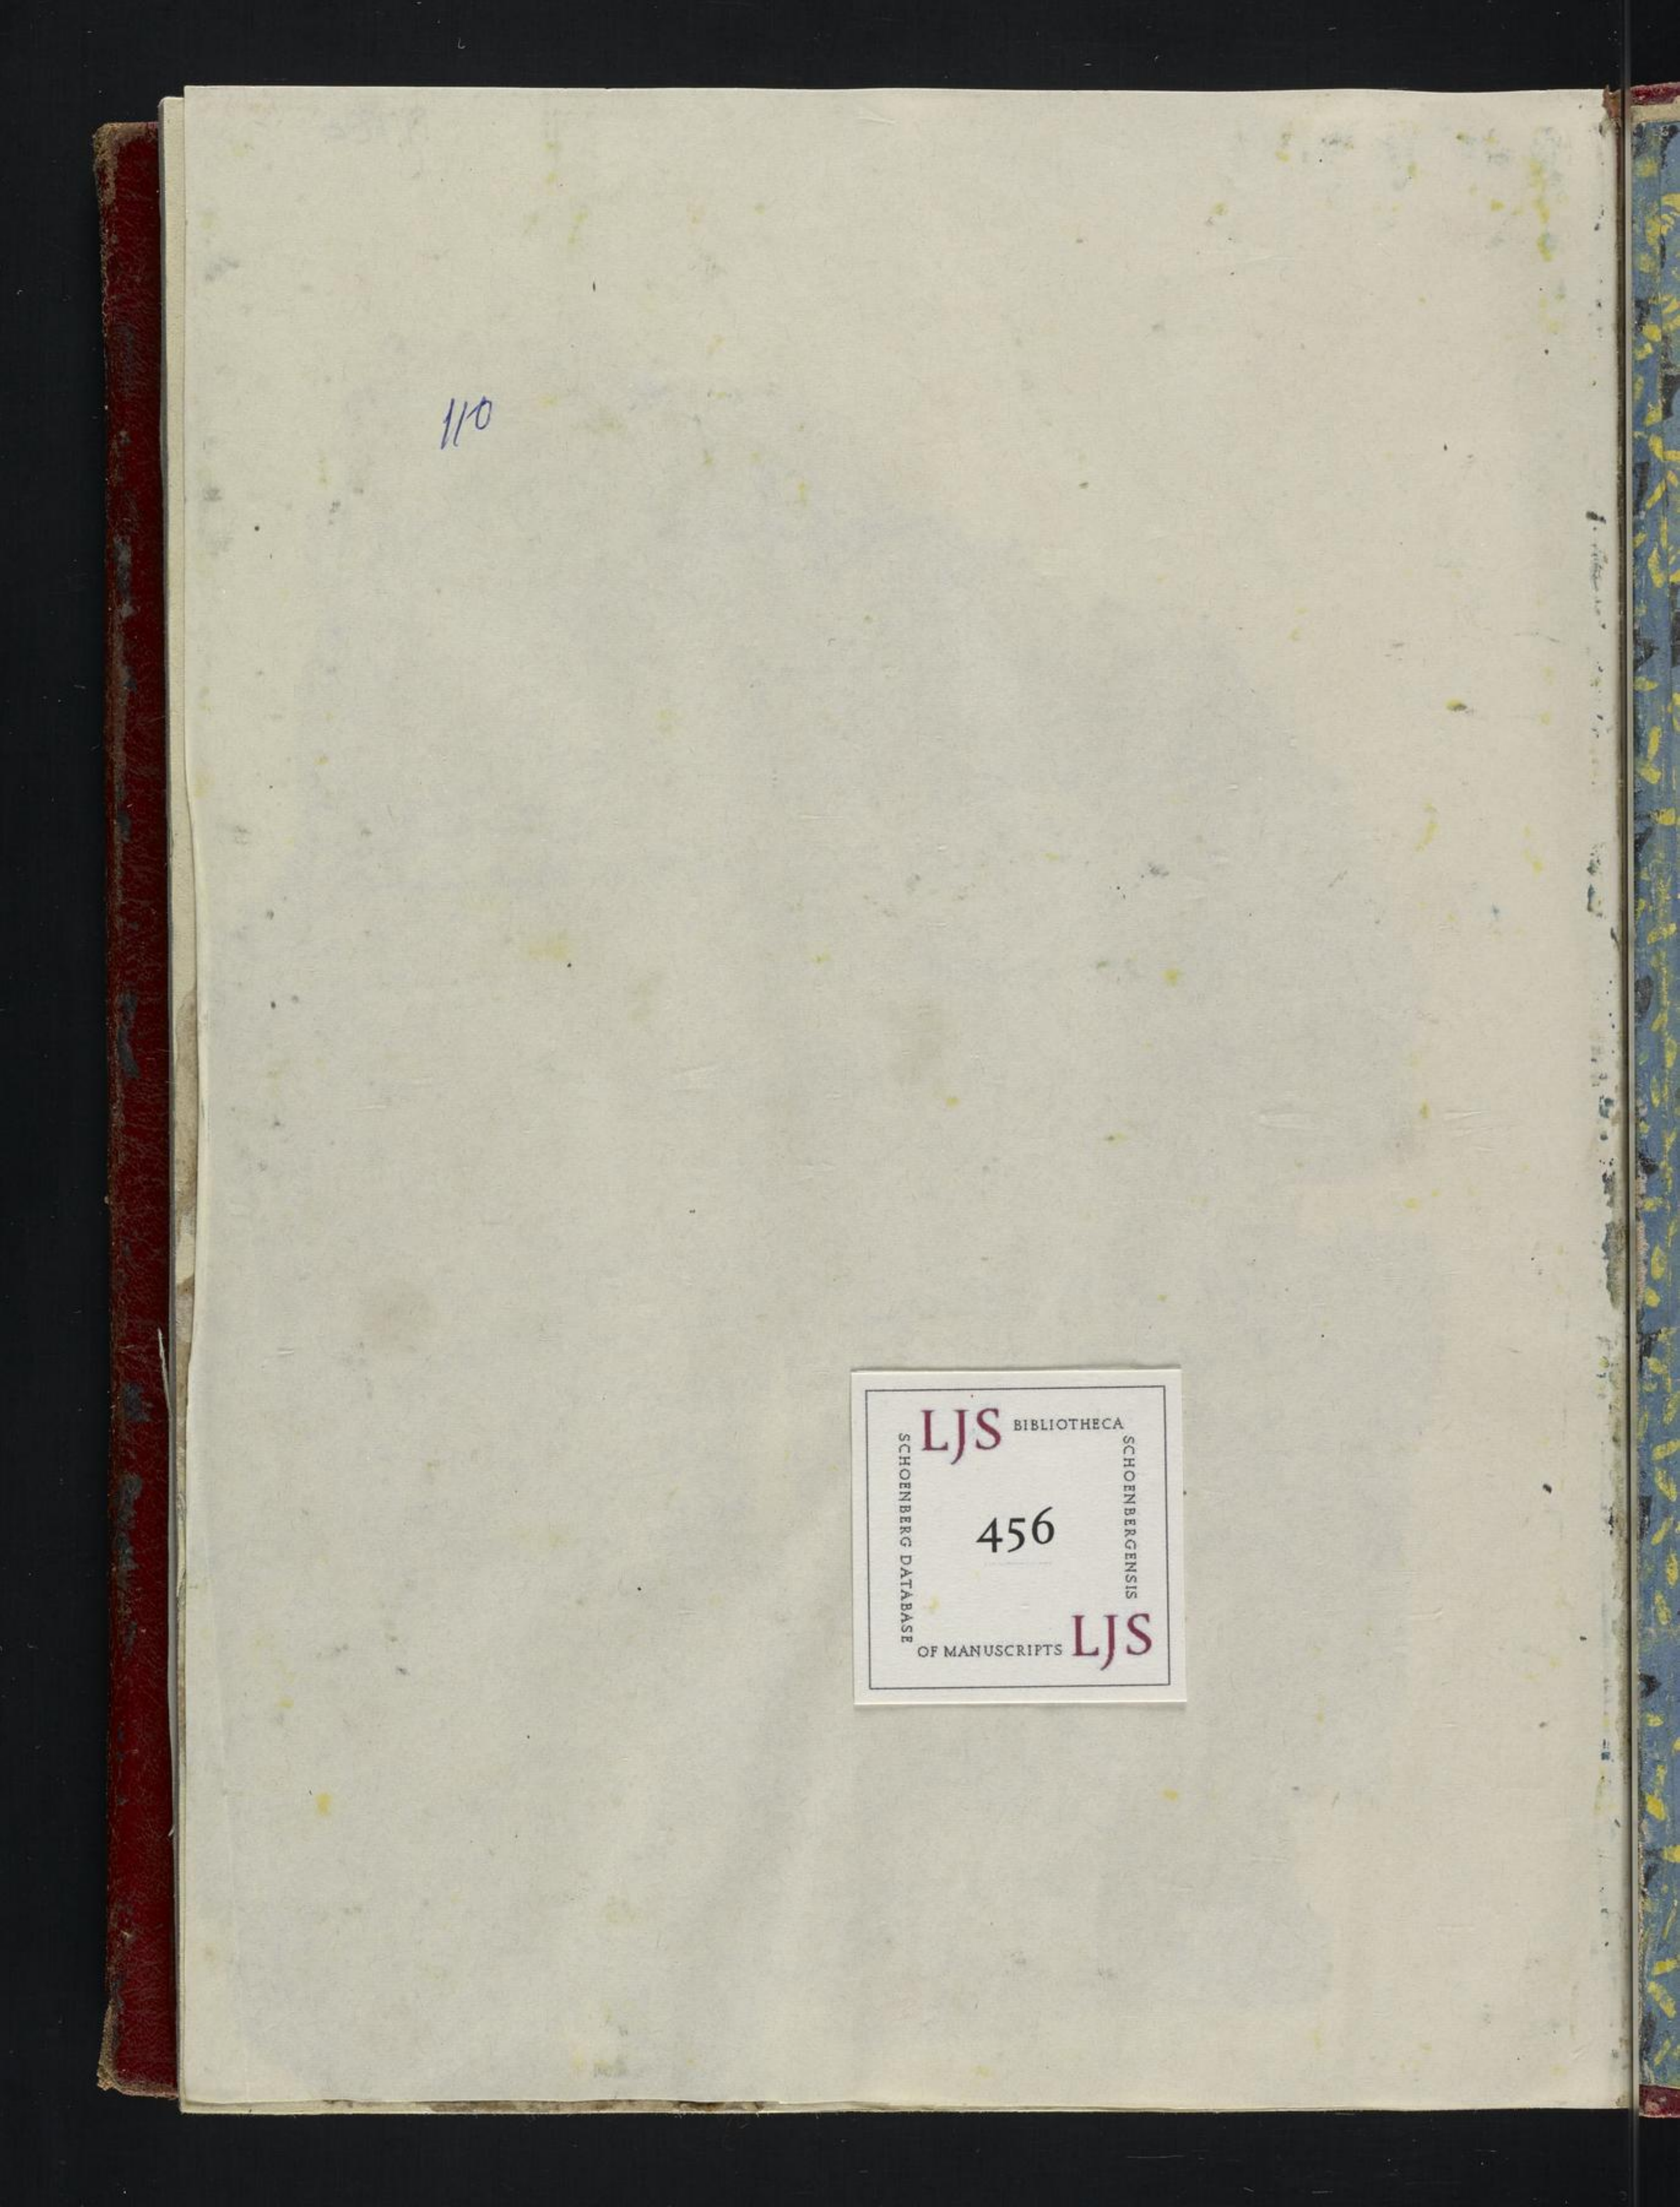 110
LJS BIBLIOTHECA
SCHOENBERGENSIS
456
SCHOENBERG DATABASE
OF MANUSCRIPTS LJS